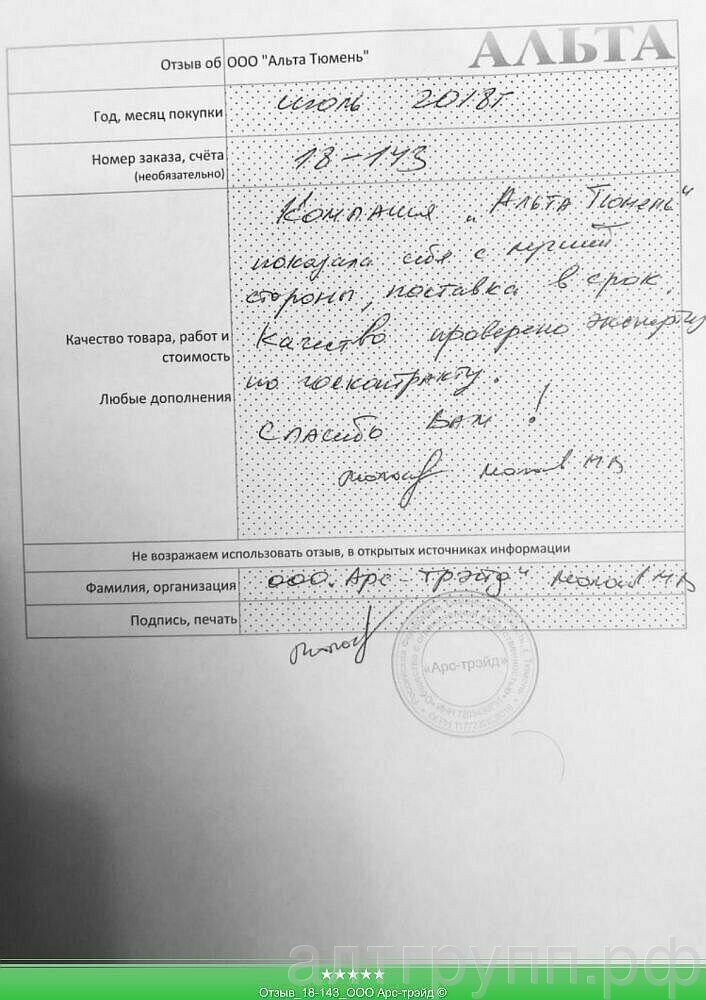 АЛЬТА
Отзыв об ООО "Альта Тюмень"
Год, месяц покупки июль 2018г
Номер заказа, счёта 18-143
(необязательно)
Компания „Альта Тюмень"
показала себя с лучшей
стороны, поставка в срок.
Качество товара, работ и
стоимость
Качество проверено
по госконтракту.
Любые дополнения
Спасибо Вам!
МВ
Не возражаем использовать отзыв, в открытых источниках информации
Фамилия, организация ООО „Арс-Трэйд" МВ
Подпись, печать
«Арс-трэйд»
алтгрупп.рф
★★★★★
Отзыв_18-143_ООО Арс-трэйд ©